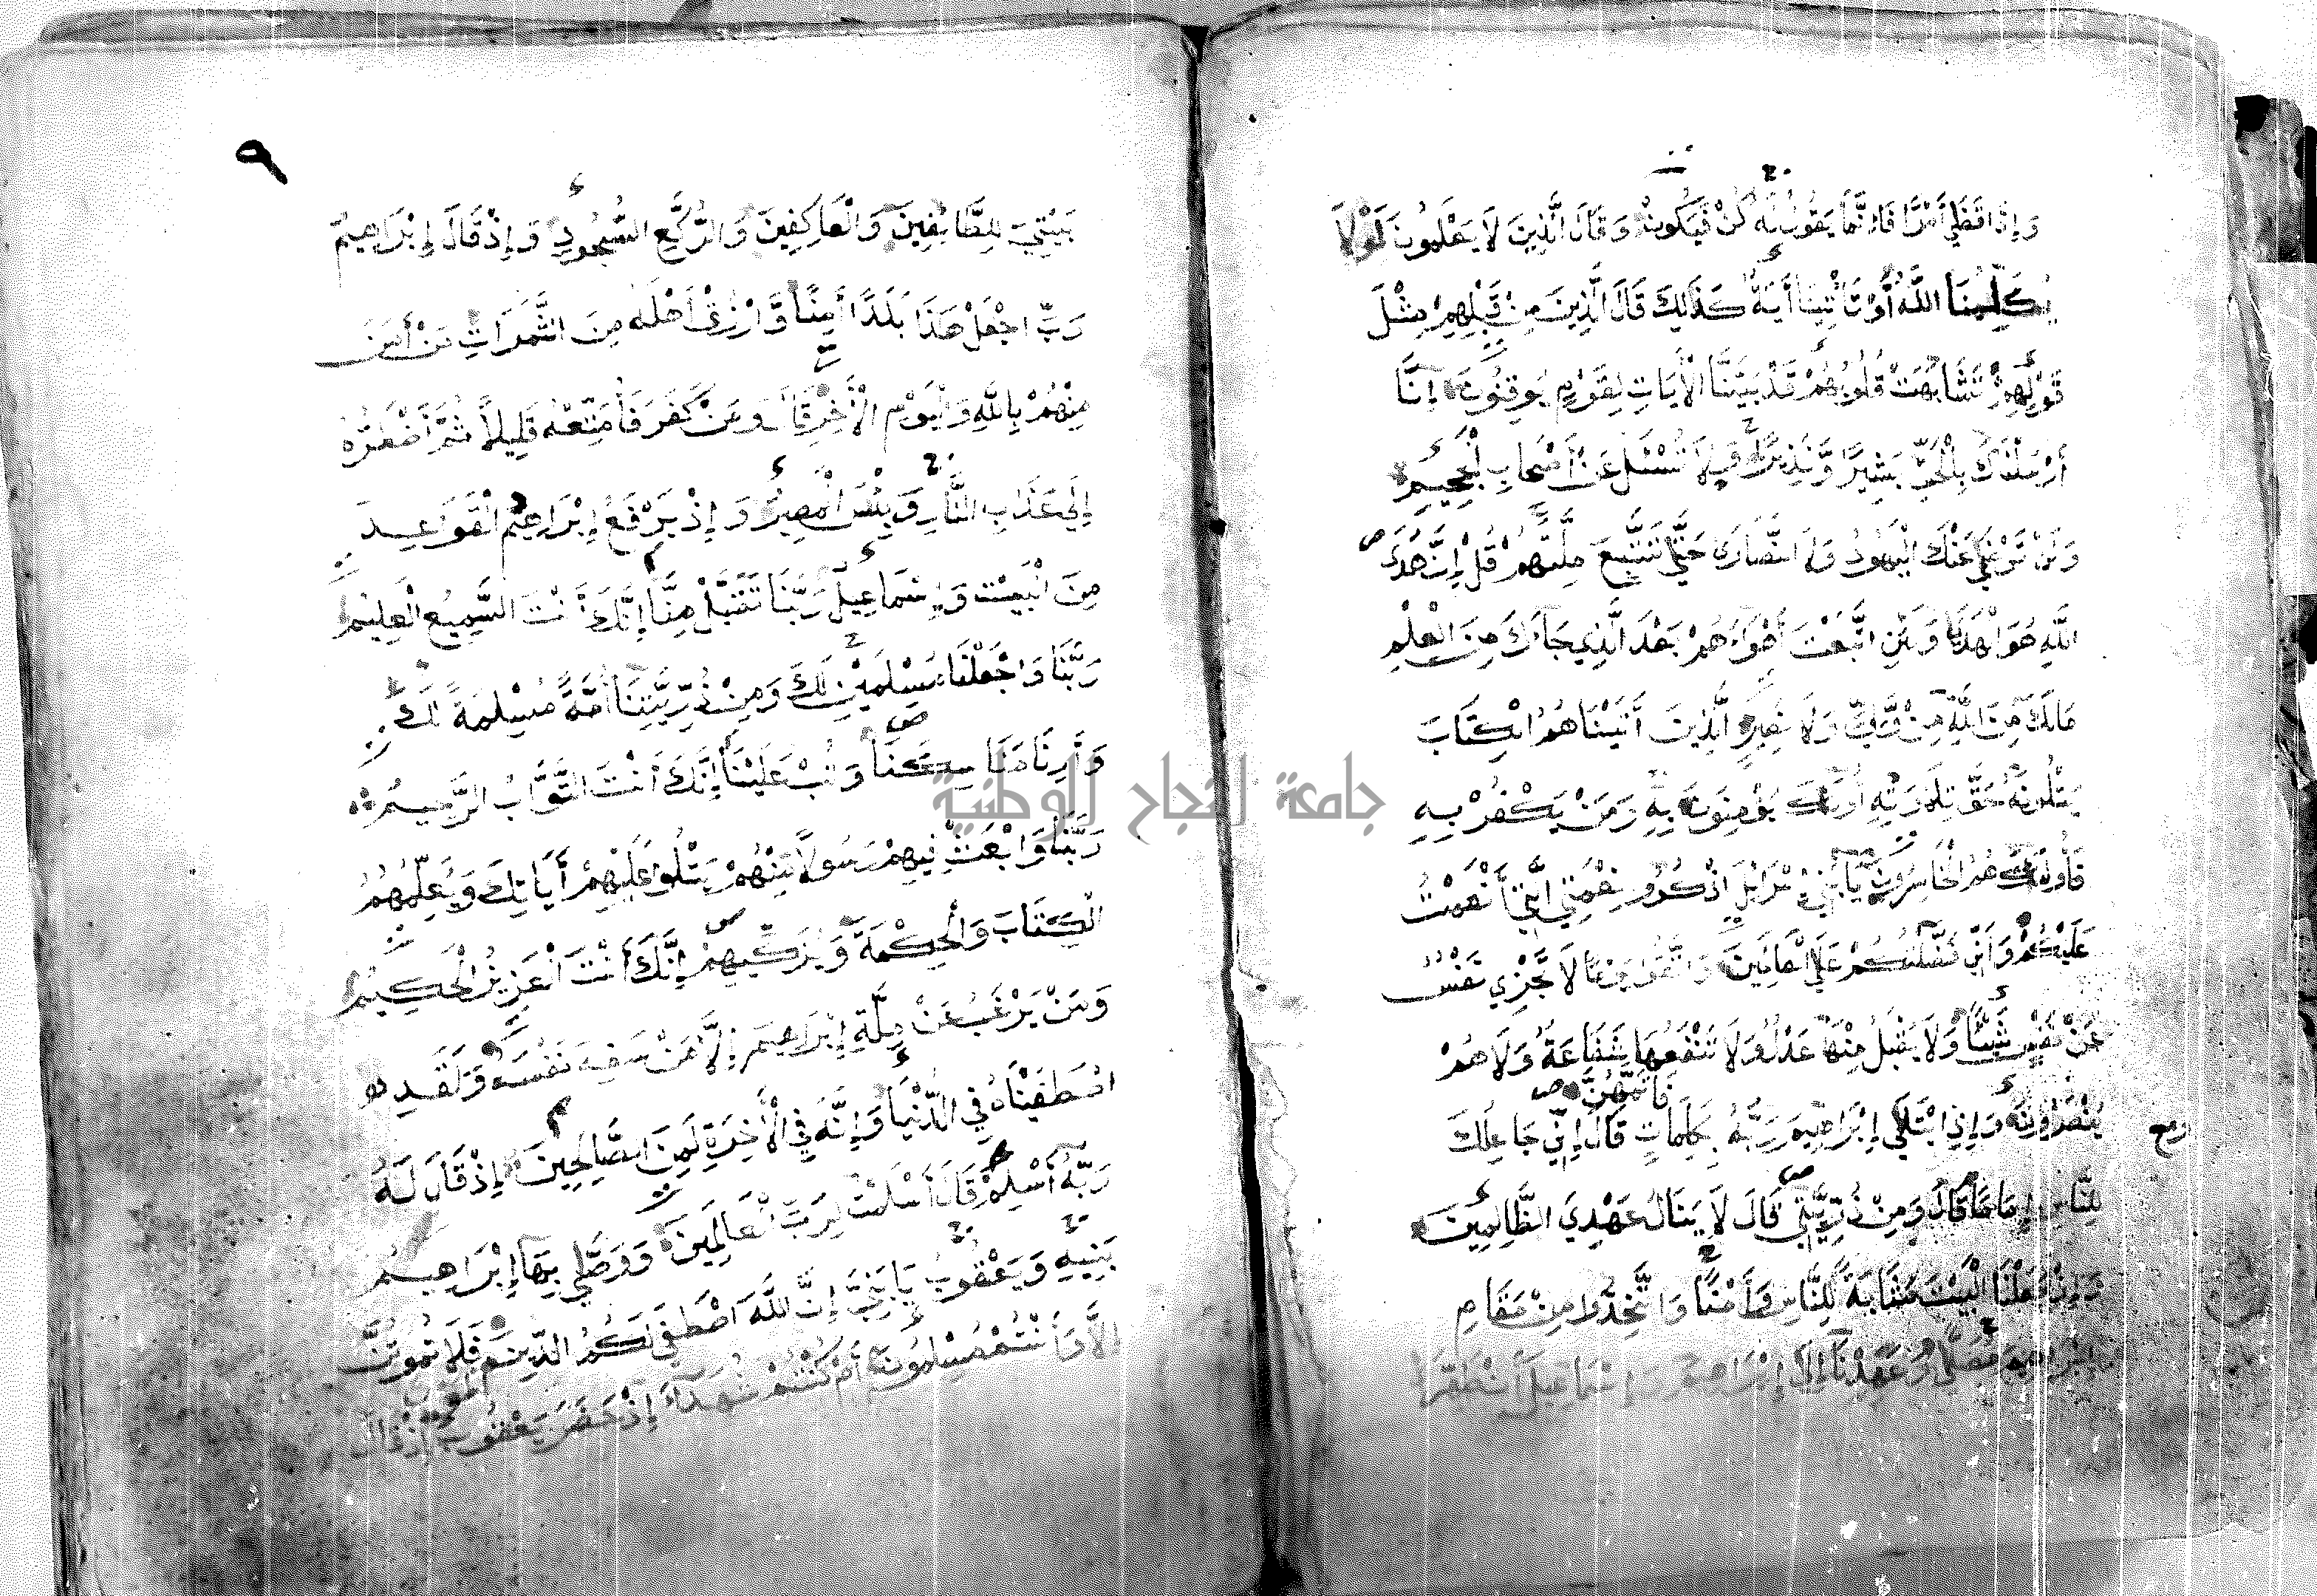 وَإِذَا قَضَى أَمْرًا فَإِنَّمَا يَقُولُ لَهُ كُنْ فَيَكُونُ وَقَالَ الَّذِينَ لَا يَعْلَمُونَ لَوْلَا
يُكَلِّمُنَا اللَّهُ أَوْ تَأْتِينَا أَيَةٌ كَذَالِكَ قَالَ الَّذِينَ مِنْ قَبْلِهِمْ مِثْلَ
قَوْلِهِمْ تَشَابَهَتْ قُلُوبُهُمْ قَدْ بَيَّنَّا الْأَيَاتِ لِقَوْمٍ يُوقِنُونَ إِنَّا
أَرْسَلْنَاكَ بِالْحَقِّ بَشِيرًا وَّنَذِيرًا وَلَا تُسْئَلُ عَنْ أَصْحَابِ الْجَحِيمِ
وَلَنْ تَرْضَى عَنْكَ الْيَهُودُ وَلَا النَّصَارَى حَتَّى تَتَّبِعَ مِلَّتَهُمْ قُلْ إِنَّ هُدَى
اللَّهِ هُوَ الْهُدَى وَلَئِنِ اتَّبَعْتَ أَهْوَاءَهُمْ بَعْدَ الَّذِي جَاءَكَ مِنَ الْعِلْمِ
مَالَكَ مِنَ اللَّهِ مِنْ وَّلِيٍّ وَلَا نَصِيرٍ الَّذِينَ أَتَيْنَاهُمُ الْكِتَابَ
يَتْلُونَهُ حَقَّ تِلَاوَتِهِ أُولَئِكَ يُؤْمِنُونَ بِهِ وَمَنْ يَكْفُرْ بِهِ
فَأُولَئِكَ هُمُ الْخَاسِرُونَ يَا بَنِي إِسْرَائِلَ اذْكُرُوا نِعْمَتِي الَّتِي أَنْعَمْتُ
عَلَيْكُمْ وَأَنِّي فَضَّلْتُكُمْ عَلَى الْعَالَمِينَ وَاتَّقُوا يَوْمًا لَا تَجْزِي نَفْسٌ
عَنْ نَفْسٍ شَيْئًا وَلَا يُقْبَلُ مِنْهَا عَدْلٌ وَلَا تَنْفَعُهَا شَفَاعَةٌ وَلَا هُمْ
فَأَتَمَّهُنَّ
يُنْصَرُونَ وَإِذِ ابْتَلَى إِبْرَاهِيمَ رَبُّهُ بِكَلِمَاتٍ قَالَ إِنِّي جَاعِلُكَ
لِلنَّاسِ إِمَامًا قَالَ وَمِنْ ذُرِّيَّتِي قَالَ لَا يَنَالُ عَهْدِي الظَّالِمِينَ
وَإِذْ جَعَلْنَا الْبَيْتَ مَثَابَةً لِّلنَّاسِ وَأَمْنًا وَاتَّخِذُوا مِنْ مَقَامِ
إِبْرَاهِيمَ مُصَلًّى وَعَهِدْنَا إِلَى إِبْرَاهِيمَ وَإِسْمَاعِيلَ أَنْ طَهِّرَا
٩
بَيْتِيَ لِلطَّائِفِينَ وَالْعَاكِفِينَ وَالرُّكَّعِ السُّجُودِ وَإِذْ قَالَ إِبْرَاهِيمُ
رَبِّ اجْعَلْ هَذَا بَلَدًا أَمِنًا وَّارْزُقْ أَهْلَهُ مِنَ الثَّمَرَاتِ مَنْ أَمَنَ
مِنْهُمْ بِاللَّهِ وَالْيَوْمِ الْأَخِرِ قَالَ وَمَنْ كَفَرَ فَأُمَتِّعُهُ قَلِيلًا ثُمَّ أَضْطَرُّهُ
إِلَى عَذَابِ النَّارِ وَبِئْسَ الْمَصِيرُ وَإِذْ يَرْفَعُ إِبْرَاهِيمُ الْقَوَاعِدَ
مِنَ الْبَيْتِ وَإِسْمَاعِيلُ رَبَّنَا تَقَبَّلْ مِنَّا إِنَّكَ أَنْتَ السَّمِيعُ الْعَلِيمُ
رَبَّنَا وَاجْعَلْنَا مُسْلِمَيْنِ لَكَ وَمِنْ ذُرِّيَّتِنَا أُمَّةً مُسْلِمَةً لَّكَ
وَأَرِنَا مَنَاسِكَنَا وَتُبْ عَلَيْنَا إِنَّكَ أَنْتَ التَّوَّابُ الرَّحِيمُ
رَبَّنَا وَابْعَثْ فِيهِمْ رَسُولًا مِّنْهُمْ يَتْلُوا عَلَيْهِمْ أَيَاتِكَ وَيُعَلِّمُهُمُ
الْكِتَابَ وَالْحِكْمَةَ وَيُزَكِّيهِمْ إِنَّكَ أَنْتَ الْعَزِيزُ الْحَكِيمُ
وَمَنْ يَرْغَبُ عَنْ مِلَّةِ إِبْرَاهِيمَ إِلَّا مَنْ سَفِهَ نَفْسَهُ وَلَقَدِ
اصْطَفَيْنَاهُ فِي الدُّنْيَا وَإِنَّهُ فِي الْأَخِرَةِ لَمِنَ الصَّالِحِينَ إِذْ قَالَ لَهُ
رَبُّهُ أَسْلِمْ قَالَ أَسْلَمْتُ لِرَبِّ الْعَالَمِينَ وَوَصَّى بِهَا إِبْرَاهِيمُ
بَنِيهِ وَيَعْقُوبُ يَا بَنِيَّ إِنَّ اللَّهَ اصْطَفَى لَكُمُ الدِّينَ فَلَا تَمُوتُنَّ
إِلَّا وَأَنْتُمْ مُسْلِمُونَ أَمْ كُنْتُمْ شُهَدَاءَ إِذْ حَضَرَ يَعْقُوبَ الْمَوْتُ إِذْ قَالَ
جامعة النجاح الوطنية